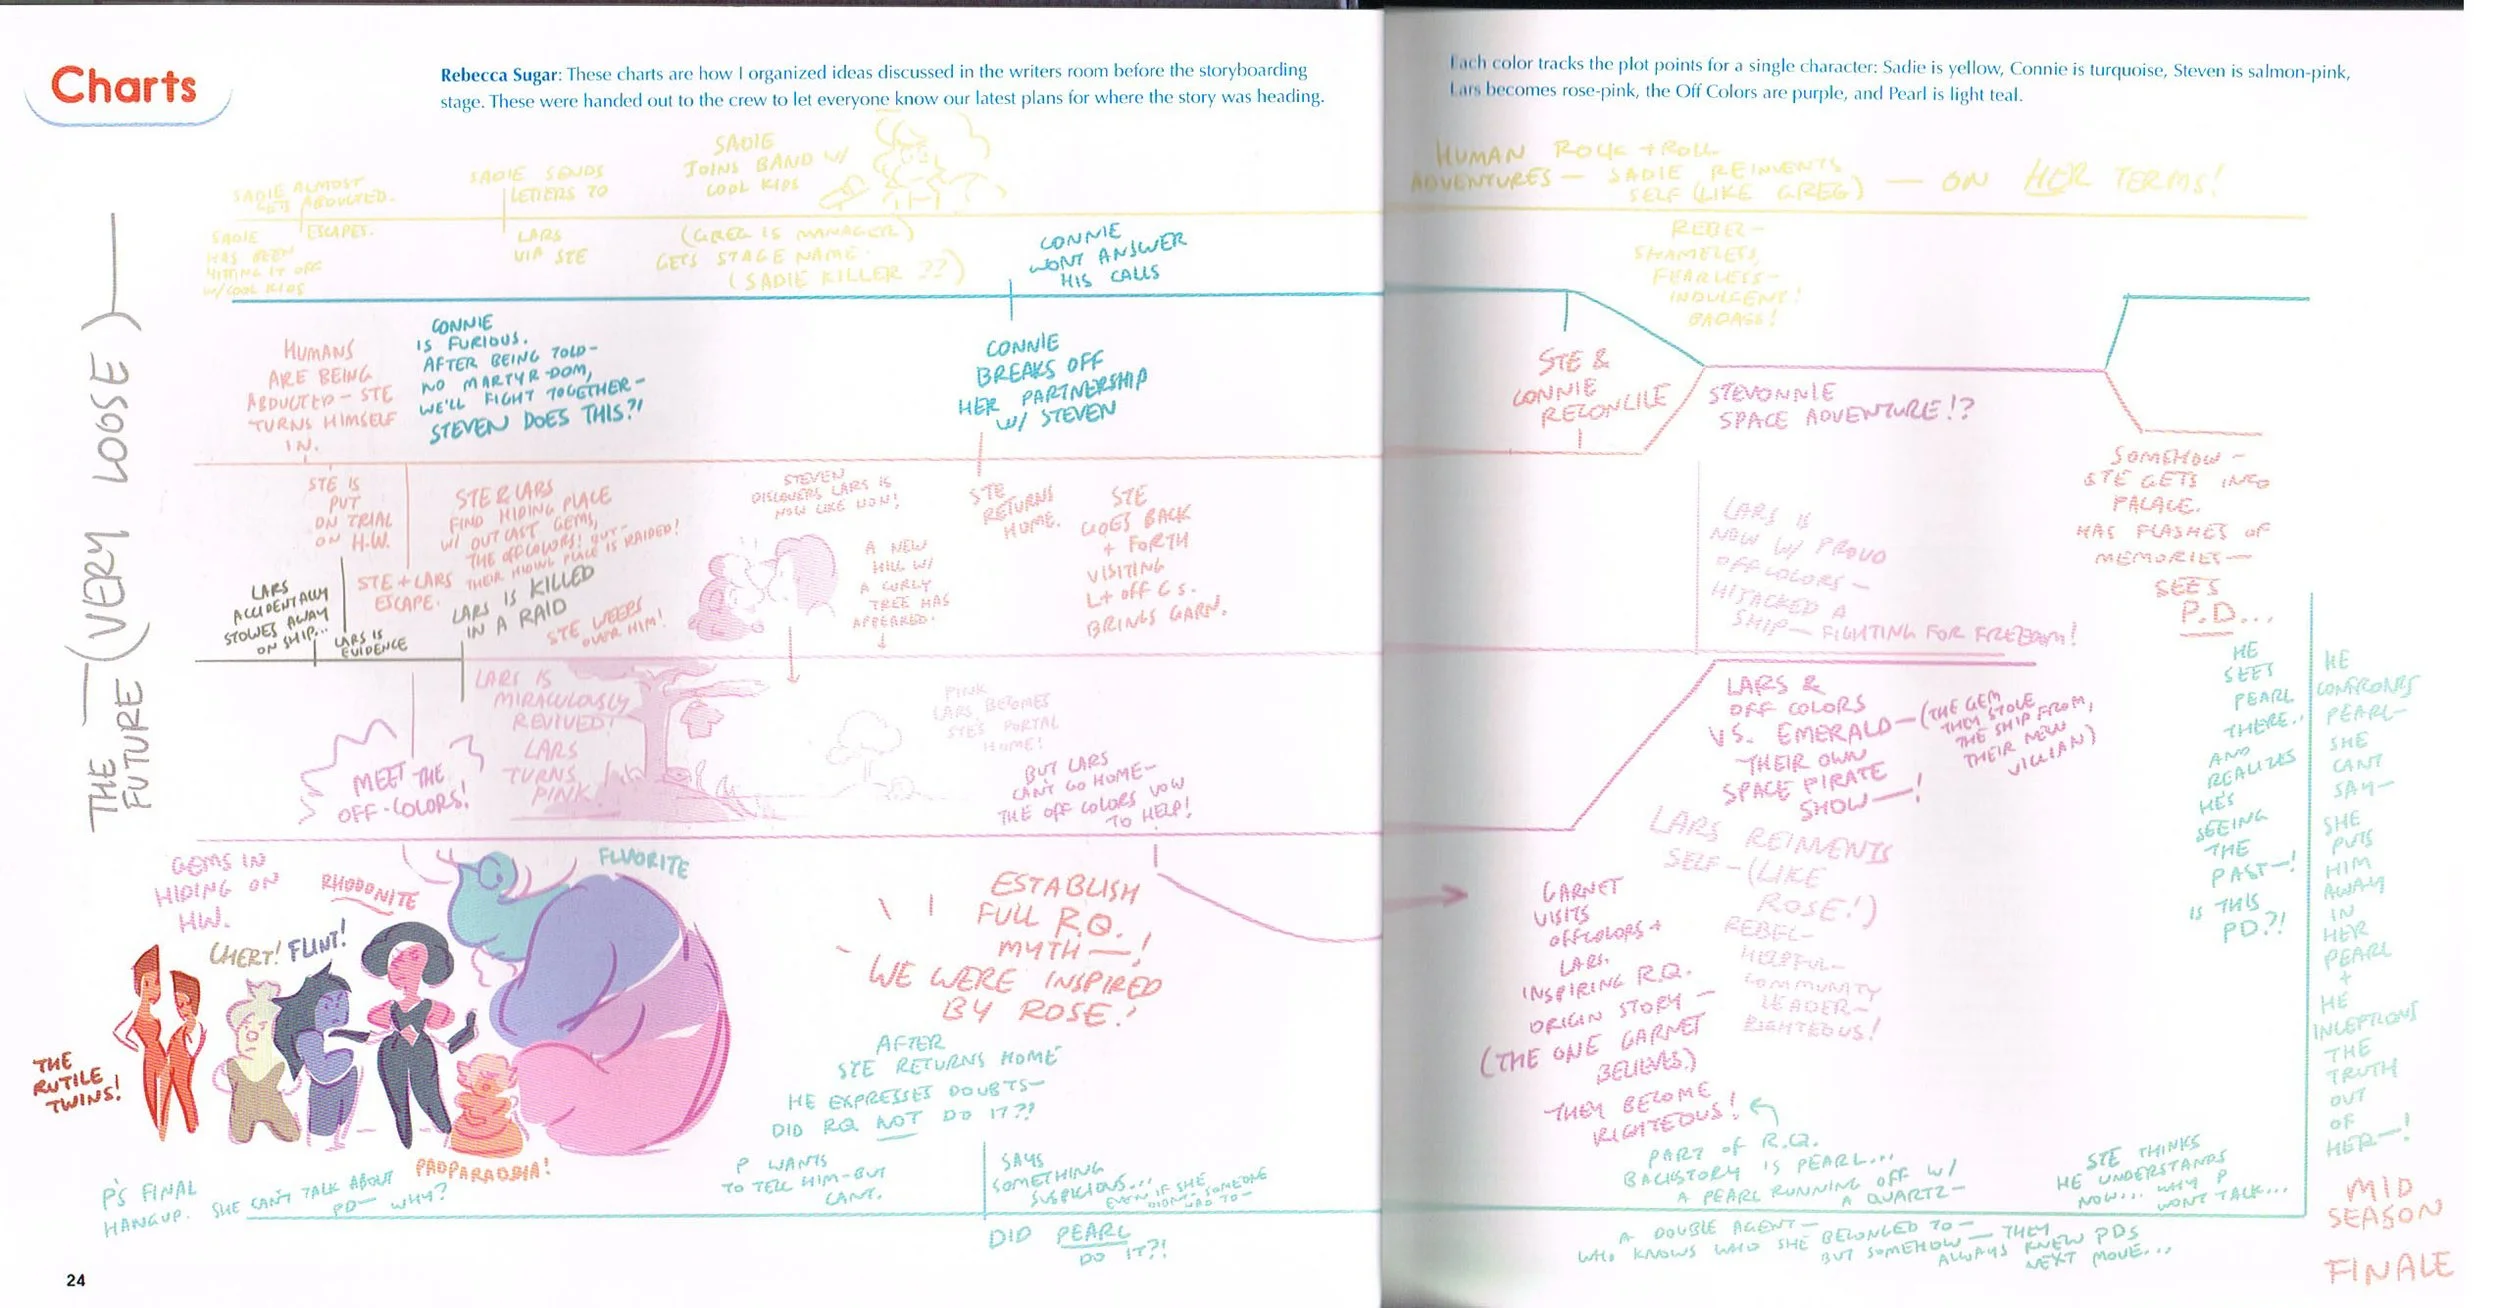 Charts
Rebecca Sugar: These charts are how I organized ideas discussed in the writers room before the storyboarding
stage. These were handed out to the crew to let everyone know our latest plans for where the story was heading.
Each color tracks the plot points for a single character: Sadie is yellow, Connie is turquoise, Steven is salmon-pink,
Lars becomes rose-pink, the Off Colors are purple, and Pearl is light teal.
THE
FUTURE
(VERY LOOSE)
SADIE ALMOST
GETS ABDUCTED.
ESCAPES.
SADIE
HAS BEEN
HITTING IT OFF
W/COOL KIDS
SADIE SENDS
LETTERS TO
LARS
VIA STE
SADIE
JOINS BAND W/
COOL KIDS
(GREG IS MANAGER)
GETS STAGE NAME.
(SADIE KILLER ??)
HUMAN ROCK + ROLL
ADVENTURES — SADIE REINVENTS
SELF (LIKE GREG) — ON HER TERMS!
REBEL—
SHAMELESS,
FEARLESS—
INDULGENT!
BADASS!
CONNIE
WONT ANSWER
HIS CALLS
HUMANS
ARE BEING
ABDUCTED — STE
TURNS HIMSELF
IN.
CONNIE
IS FURIOUS.
AFTER BEING TOLD—
NO MARTYR-DOM,
WE'LL FIGHT TOGETHER—
STEVEN DOES THIS?!
CONNIE
BREAKS OFF
HER PARTNERSHIP
W/ STEVEN
STE &
CONNIE
RECONCILE
STEVONNIE
SPACE ADVENTURE!?
STE IS
PUT
ON TRIAL
ON H.W.
STE + LARS
ESCAPE.
STE & LARS
FIND HIDING PLACE
W/ OUTCAST GEMS,
THE OFF COLORS! BUT—
THEIR HIDING PLACE IS RAIDED!
LARS IS KILLED
IN A RAID
STE WEEPS
OVER HIM!
STEVEN
DISCOVERS LARS IS
NOW LIKE LION!
A NEW
HILL W/
A CURLY
TREE HAS
APPEARED.
STE
RETURNS
HOME.
STE
GOES BACK
+ FORTH
VISITING
L + OFF C S.
BRINGS GARN.
LARS IS
NOW W/ PROUD
OFF COLORS—
HIJACKED A
SHIP — FIGHTING FOR FREEDOM!
SOMEHOW—
STE GETS INTO
PALACE.
HAS FLASHES OF
MEMORIES—
SEES
P.D...
LARS
ACCIDENTALLY
STOWES AWAY
ON SHIP...
LARS IS
EVIDENCE
LARS IS
MIRACULOUSLY
REVIVED!
LARS
TURNS
PINK!
PINK
LARS BECOMES
STE'S PORTAL
HOME!
MEET THE
OFF-COLORS!
BUT LARS
CAN'T GO HOME—
THE OFF COLORS VOW
TO HELP!
LARS &
OFF COLORS
VS. EMERALD — (THE GEM
THEY STOLE
THE SHIP FROM,
THEIR NEW
VILLIAN)
THEIR OWN
SPACE PIRATE
SHOW—!
LARS REINVENTS
SELF — (LIKE
ROSE!)
REBEL—
HELPFUL—
COMMUNITY
LEADER—
RIGHTEOUS!
GEMS IN
HIDING ON
HW.
RHODONITE
FLUORITE
CHERT!
FLINT!
THE
RUTILE
TWINS!
PADPARADJIA!
ESTABLISH
FULL R.Q.
MYTH—!
WE WERE INSPIRED
BY ROSE!
GARNET
VISITS
OFFCOLORS +
LARS.
INSPIRING R.Q.
ORIGIN STORY —
(THE ONE GARNET
BELIEVES.)
THEY BECOME
RIGHTEOUS!
AFTER
STE RETURNS HOME
HE EXPRESSES DOUBTS—
DID RQ NOT DO IT?!
P'S FINAL
HANGUP. SHE CAN'T TALK ABOUT
PD — WHY?
P WANTS
TO TELL HIM — BUT
CANT.
SAYS
SOMETHING
SUSPICIOUS...
EVEN IF SHE
DIDN'T — SOMEONE
HAD TO—
DID PEARL
DO IT?!
PART OF R.Q.
BACKSTORY IS PEARL...
A PEARL RUNNING OFF W/
A QUARTZ—
A DOUBLE AGENT—
WHO KNOWS WHO SHE BELONGED TO —
BUT SOMEHOW — THEY
ALWAYS KNEW PDS
NEXT MOVE...
STE THINKS
HE UNDERSTANDS
NOW... WHY P
WONT TALK...
HE
SEES
PEARL
THERE..
AND
REALIZES
HE'S
SEEING
THE
PAST—!
IS THIS
PD.?!
HE
CONFRONTS
PEARL—
SHE
CANT
SAY—
SHE
PUTS
HIM
AWAY
IN
HER
PEARL
+
HE
INCEPTIONS
THE
TRUTH
OUT
OF
HER—!
MID
SEASON
FINALE
24